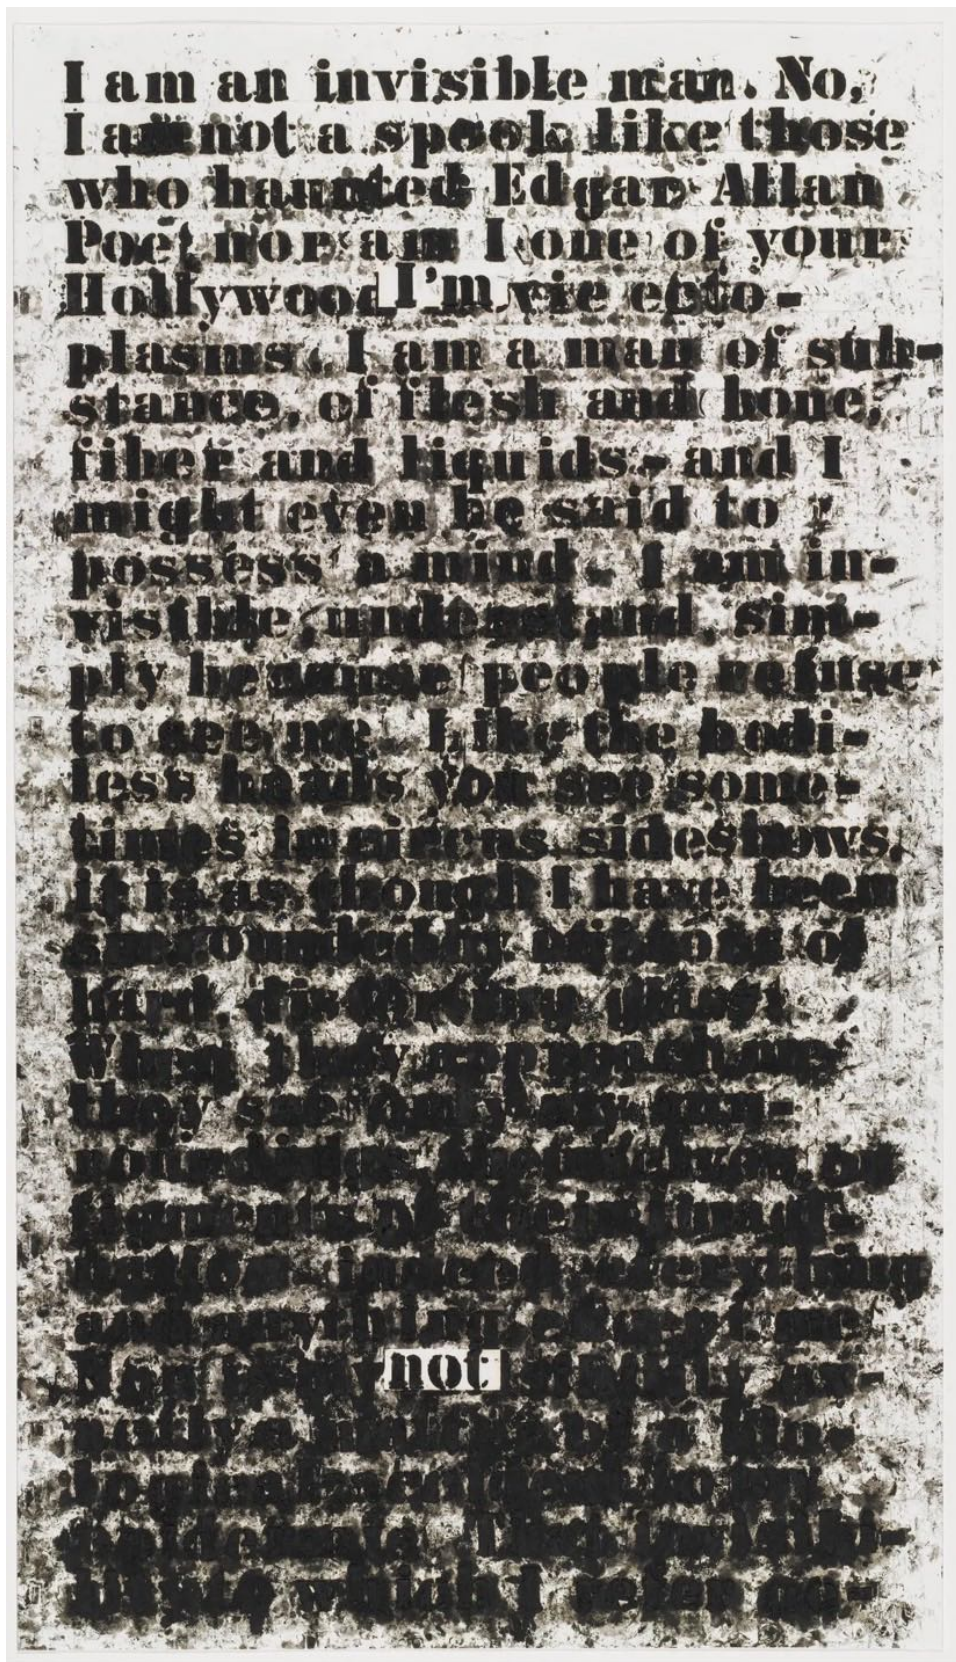 I am an invisible man. No,
I am not a spook like those
who haunted Edgar Allan
Poe; nor am I one of your
Hollywood I'm vie ecto-
plasms. I am a man of sub-
stance, of flesh and bone,
fiber and liquids - and I
might even be said to
possess a mind. I am in-
visible, understand, sim-
ply because people refuse
to see me. Like the bodi-
less heads you see some-
times in circus sideshows,
it is as though I have been
surrounded by mirrors of
hard, distorting glass.
When they approach me
they see only my sur-
roundings, themselves, or
figments of their imagi-
indeed, everything
and anything except me.
not ex-
of a
to
which I refer oc-